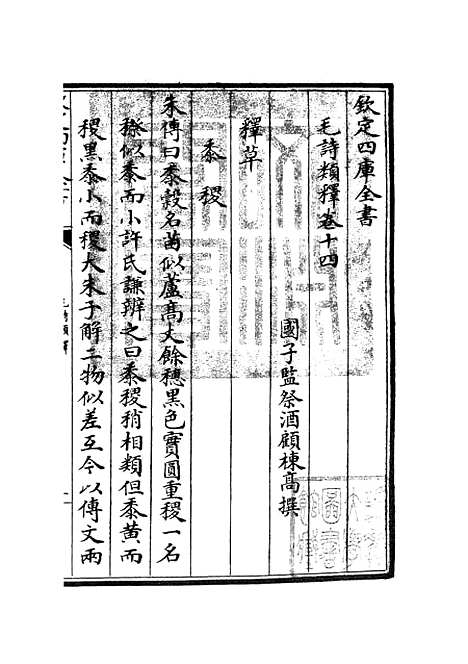 欽定四庫全書
毛詩類釋卷十四
國子監祭酒顧棟高撰
釋草
黍稷
朱傳曰黍穀名苗似蘆高丈餘穗黑色實圓重稷一名
穄似黍而小許氏謙辨之曰黍稷稍相類但黍黃而
稷黑黍小而稷大朱子解二物似差互今以傳文兩